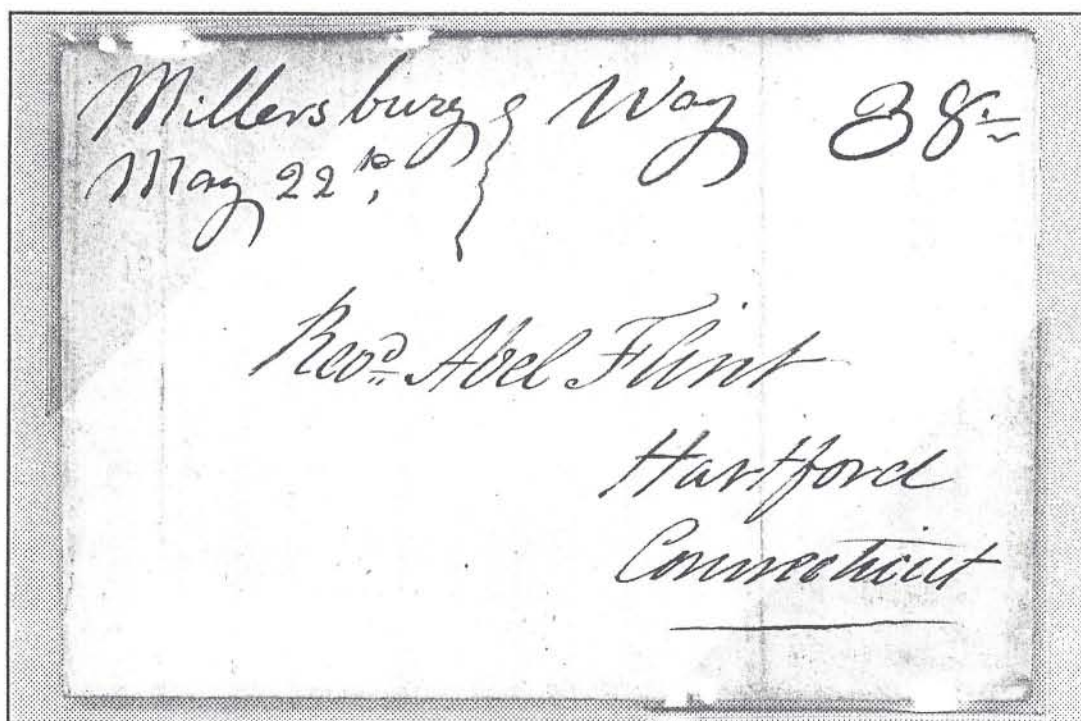 Millersburg } Way 38
May 22
Revd Abel Flint
Hartford
Connecticut